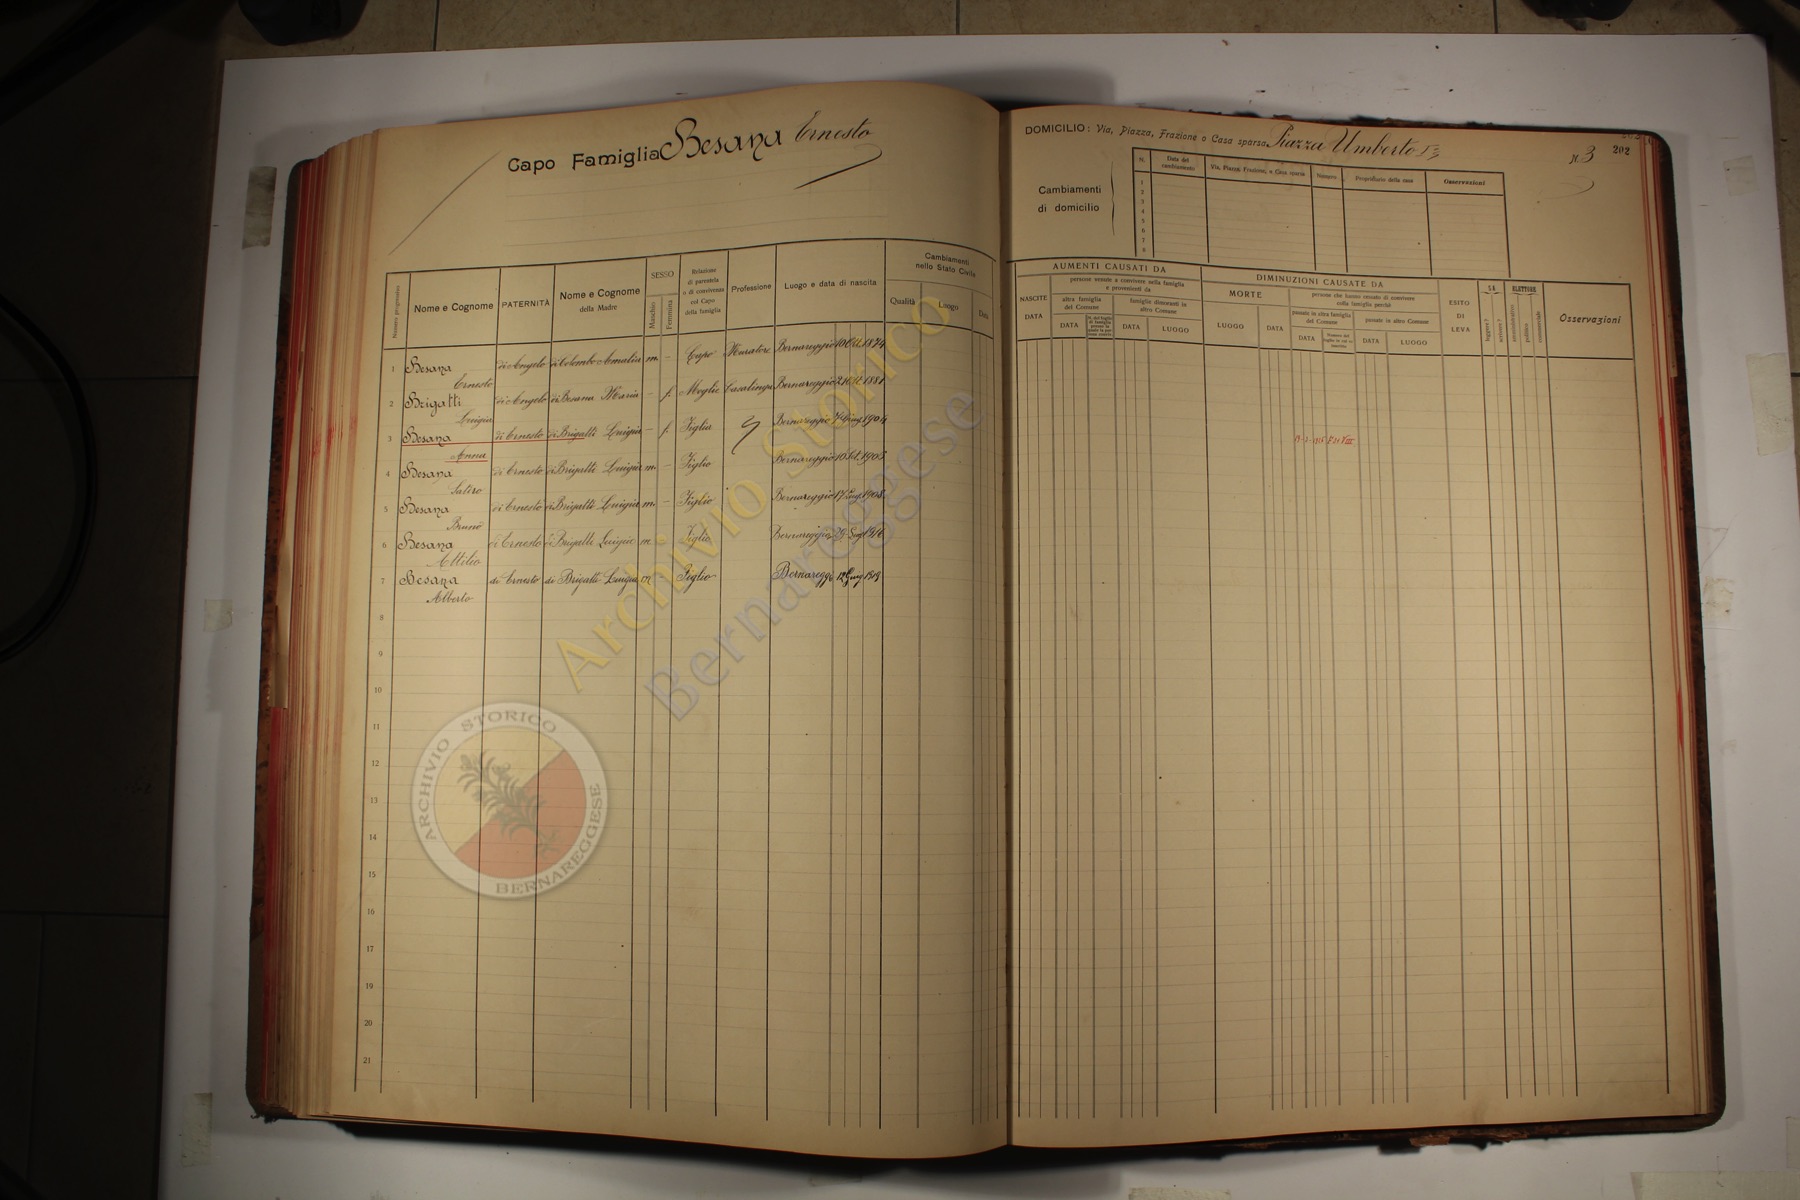 Capo Famiglia Besana Ernesto
Numero progressivo
Nome e Cognome
PATERNITÀ
Nome e Cognome
della Madre
SESSO
Maschio
Femmina
Relazione
di parentela
o di convivenza
col Capo
della famiglia
Professione
Luogo e data di nascita
Cambiamenti
nello Stato Civile
Qualità
Luogo
Data
1 Besana Ernesto di Angelo di Colombo Amalia m. – Capo Muratore Bernareggio 10 Ott. 1874
2 Brigatti Luigia di Angelo di Besana Maria – f. Moglie Casalinga Bernareggio 1881
3 Besana Anna di Ernesto di Brigatti Luigia – f. Figlia Bernareggio 1904
4 Besana Santro di Ernesto di Brigatti Luigia m. – Figlio Bernareggio 1905
5 Besana Bruno di Ernesto di Brigatti Luigia m. – Figlio Bernareggio 17 1908
6 Besana Attilio di Ernesto di Brigatti Luigia m – Figlio Bernareggio 29 1916
7 Besana Alberto di Ernesto di Brigatti Luigia m Figlio Bernareggio 12 1919
8
9
10
11
12
13
14
15
16
17
18
19
20
21
DOMICILIO: Via, Piazza, Frazione o Casa sparsa Piazza Umberto I° N 3
202
Cambiamenti
di domicilio
N.
Data del
cambiamento
Via, Piazza, Frazione, o Casa sparsa
Numero
Proprietario della casa
Osservazioni
1
2
3
4
5
6
7
8
AUMENTI CAUSATI DA
NASCITE
DATA
persone venute a convivere nella famiglia
e provenienti da
altra famiglia
del Comune
DATA
famiglie dimoranti in
altro Comune
DATA
LUOGO
DIMINUZIONI CAUSATE DA
MORTE
LUOGO
DATA
persone che hanno cessato di convivere
colla famiglia perchè
passate in altra famiglia
del Comune
DATA
passate in altro Comune
DATA
LUOGO
ESITO
DI
LEVA
SA
leggere?
scrivere?
ELETTORE
amministrativo
politico
commerciale
Osservazioni
Archivio Storico
Bernareggese
ARCHIVIO STORICO
BERNAREGGESE